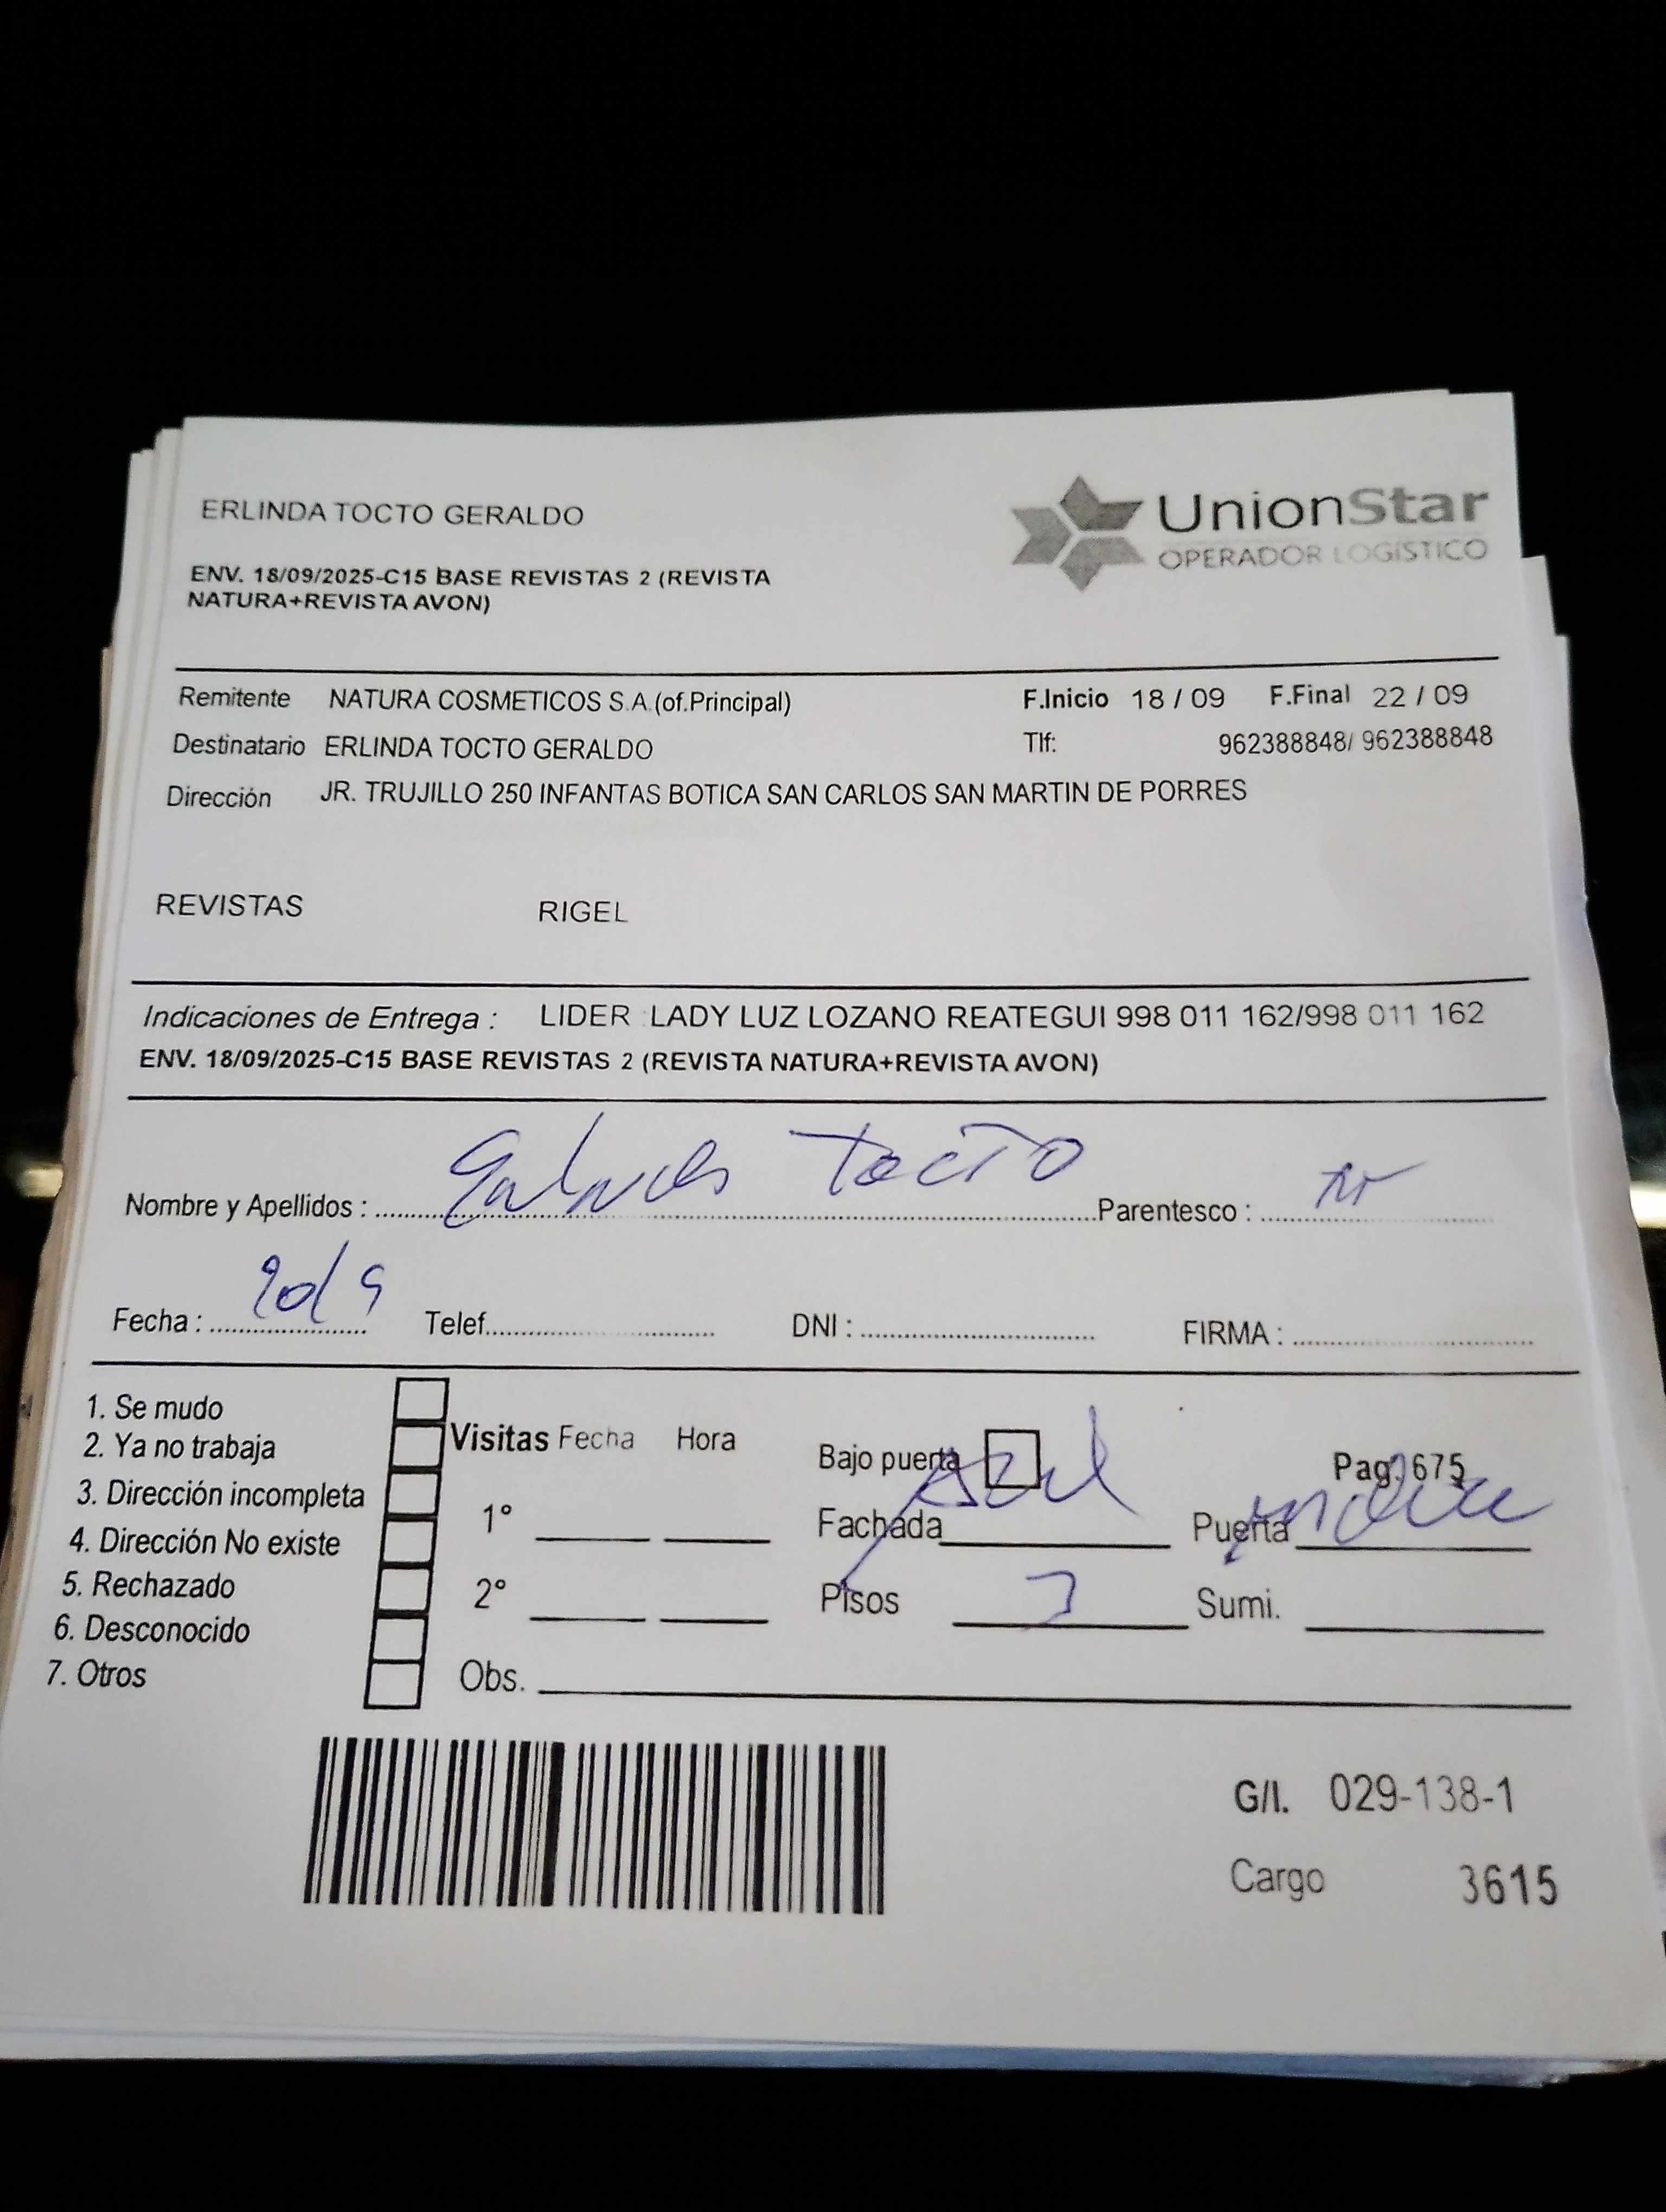 ERLINDA TOCTO GERALDO
UnionStar
OPERADOR LOGÍSTICO
ENV. 18/09/2025-C15 BASE REVISTAS 2 (REVISTA
NATURA+REVISTA AVON)
Remitente NATURA COSMETICOS S.A.(of.Principal) F.Inicio 18 / 09 F.Final 22 / 09
Destinatario ERLINDA TOCTO GERALDO Tlf: 962388848/ 962388848
Dirección JR. TRUJILLO 250 INFANTAS BOTICA SAN CARLOS SAN MARTIN DE PORRES
REVISTAS RIGEL
Indicaciones de Entrega : LIDER : LADY LUZ LOZANO REATEGUI 998 011 162/998 011 162
ENV. 18/09/2025-C15 BASE REVISTAS 2 (REVISTA NATURA+REVISTA AVON)
Nombre y Apellidos : Tocto Parentesco :
Fecha : 20/9 Telef. DNI : FIRMA :
1. Se mudo
2. Ya no trabaja
3. Dirección incompleta
4. Dirección No existe
5. Rechazado
6. Desconocido
7. Otros
Visitas Fecha Hora
1°
2°
Obs.
Bajo puerta Pag. 675
Fachada Azul Puerta
Pisos 3 Sumi.
G/I. 029-138-1
Cargo 3615